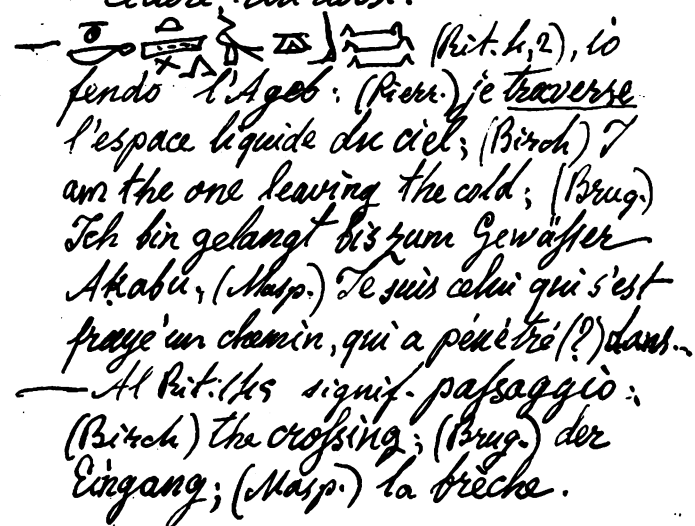 — (Rit. h, 2), io
fendo l'Ageb: (Pierr.) je traverse
l'espace liquide du ciel; (Birch) I
am the one leaving the cold; (Brug.)
Ich bin gelangt bis zum Gewässer
Akabu; (Masp.) Je suis celui qui s'est
frayé un chemin, qui a pénétré (?) dans..
— Al Rit. signif. passaggio:
(Birch) the crossing; (Brug.) der
Eingang; (Masp.) la brèche.